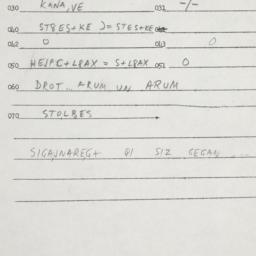 030 KANA,VE 031 -/-
040 ST8ES+KE )= STES+KE
042 0 043 0
050 HE/PC+LPAX = S+LPAX 051 0
060 DROT... ARUM UN ARUM
070 STOLBES
SIGAJNAREG+ QI SIZ CEGAN ...